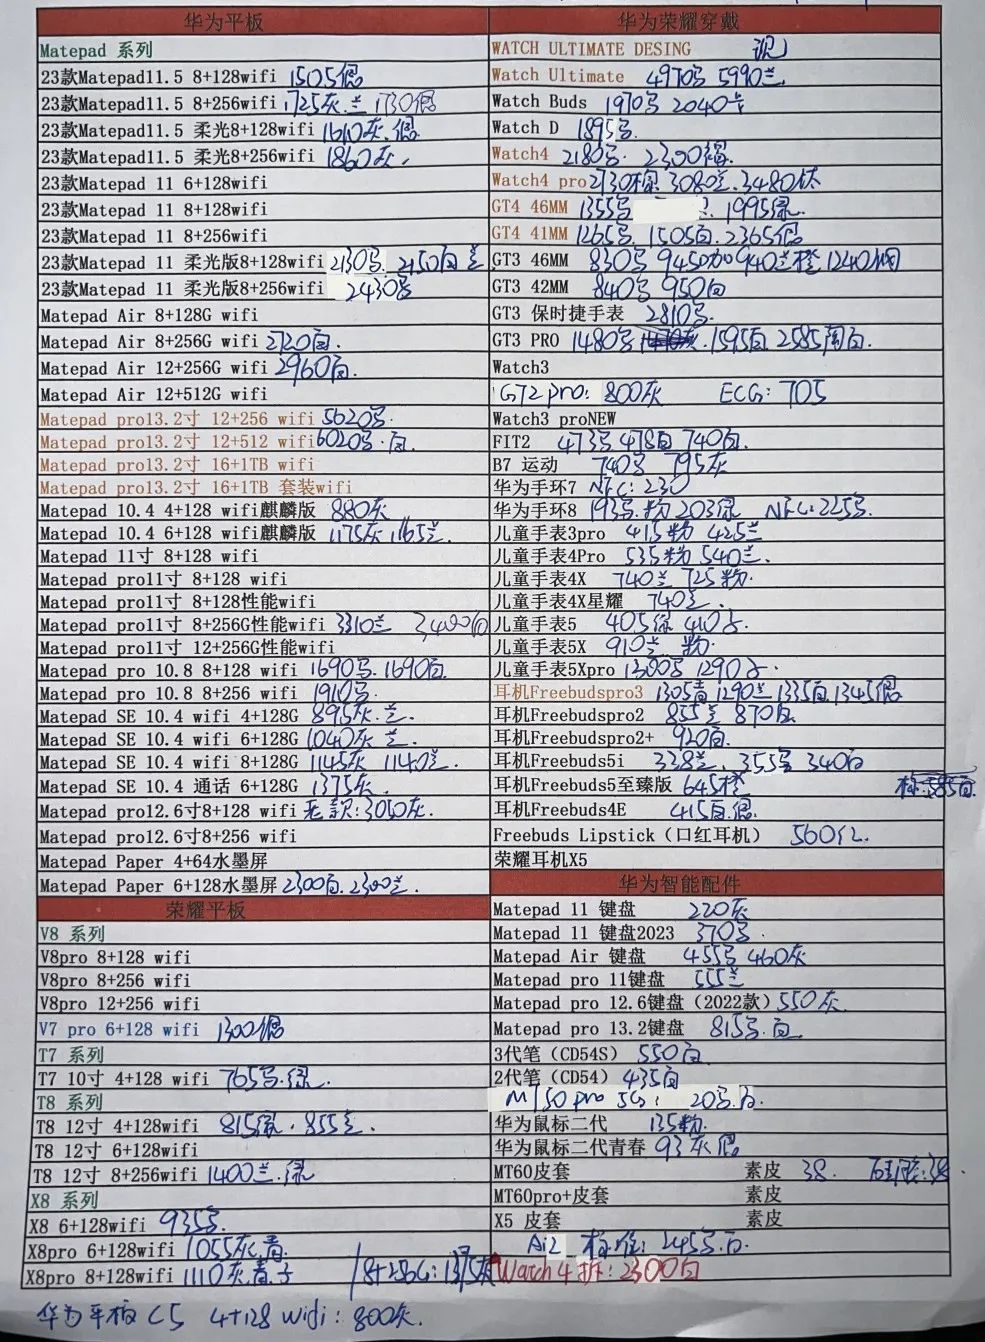 华为平板
Matepad 系列
23款Matepad11.5 8+128wifi 1505
23款Matepad11.5 8+256wifi 1725灰.兰 1730
23款Matepad11.5 柔光8+128wifi 1610灰.
23款Matepad11.5 柔光8+256wifi 1860灰.
23款Matepad 11 6+128wifi
23款Matepad 11 8+128wifi
23款Matepad 11 8+256wifi
23款Matepad 11 柔光版8+128wifi 2130 2150白 兰
23款Matepad 11 柔光版8+256wifi 2430
Matepad Air 8+128G wifi
Matepad Air 8+256G wifi 2720白.
Matepad Air 12+256G wifi 2960白.
Matepad Air 12+512G wifi
Matepad pro13.2寸 12+256 wifi 5620
Matepad pro13.2寸 12+512 wifi 6020 .白.
Matepad pro13.2寸 16+1TB wifi
Matepad pro13.2寸 16+1TB 套装wifi
Matepad 10.4 4+128 wifi麒麟版 880灰
Matepad 10.4 6+128 wifi麒麟版 1175灰 1165兰.
Matepad 11寸 8+128 wifi
Matepad pro11寸 8+128 wifi
Matepad pro11寸 8+128性能wifi
Matepad pro11寸 8+256G性能wifi 3310兰 3400白
Matepad pro11寸 12+256G性能wifi
Matepad pro 10.8 8+128 wifi 1690 1690白.
Matepad pro 10.8 8+256 wifi 1910
Matepad SE 10.4 wifi 4+128G 895灰.兰.
Matepad SE 10.4 wifi 6+128G 1040灰 兰.
Matepad SE 10.4 wifi 8+128G 1145灰 1140兰.
Matepad SE 10.4 通话 6+128G 1375灰.
Matepad pro12.6寸8+128 wifi 老款:3050灰.
Matepad pro12.6寸8+256 wifi
Matepad Paper 4+64水墨屏
Matepad Paper 6+128水墨屏 2300白.2300兰.
荣耀平板
V8 系列
V8pro 8+128 wifi
V8pro 8+256 wifi
V8pro 12+256 wifi
V7 pro 6+128 wifi 1300
T7 系列
T7 10寸 4+128 wifi 765 .绿.
T8 系列
T8 12寸 4+128wifi 815绿.855兰.
T8 12寸 6+128wifi
T8 12寸 8+256wifi 1400兰.绿
X8 系列
X8 6+128wifi 935
X8pro 6+128wifi 1055灰.青.
X8pro 8+128wifi 1110灰.青. 8+256G:1375灰
华为平板 C5 4+128 wifi:800灰.
华为荣耀穿戴
WATCH ULTIMATE DESING
Watch Ultimate 4970 5990兰
Watch Buds 1970 2040
Watch D 1895
Watch4 2180. 2300
Watch4 pro 2730棕.3080兰.3480钛
GT4 46MM 1355 1995绿.
GT4 41MM 1265 1505白.2365
GT3 46MM 830 945 940兰橙 1240钢
GT3 42MM 840 950白
GT3 保时捷手表 2810
GT3 PRO 1480 .1595白 2585陶白.
Watch3
GT2 pro:800灰 ECG:705
Watch3 proNEW
FIT2 473 478白 740白.
B7 运动 740 795灰
华为手环7 NFC:230
华为手环8 193 .粉 203绿 NFC:225
儿童手表3pro 415粉 425兰
儿童手表4Pro 535粉 540兰.
儿童手表4X 740兰 725粉.
儿童手表4X星耀 740兰.
儿童手表5 405绿 410
儿童手表5X 910兰 粉.
儿童手表5Xpro 1300 1290
耳机Freebudspro3 1305青 1290兰 1335白.1345
耳机Freebudspro2 855兰 870白
耳机Freebudspro2+ 920白.
耳机Freebuds5i 338兰. 353 340白
耳机Freebuds5至臻版 645橙 标:585白.
耳机Freebuds4E 415白.
Freebuds Lipstick（口红耳机） 560红.
荣耀耳机X5
华为智能配件
Matepad 11 键盘 220灰
Matepad 11 键盘2023 370
Matepad Air 键盘 455 460灰
Matepad pro 11键盘 555兰
Matepad pro 12.6键盘（2022款） 550灰.
Matepad pro 13.2键盘 815 .白
3代笔（CD54S） 550白
2代笔（CD54） 435白
M T50 pro 5G: 20 .白.
华为鼠标二代 135粉.
华为鼠标二代青春 93灰
MT60皮套 素皮 38. 硅胶:38
MT60pro+皮套 素皮
X5 皮套 素皮
Air2 标准:245 .白.
Watch 4 拆:2300白